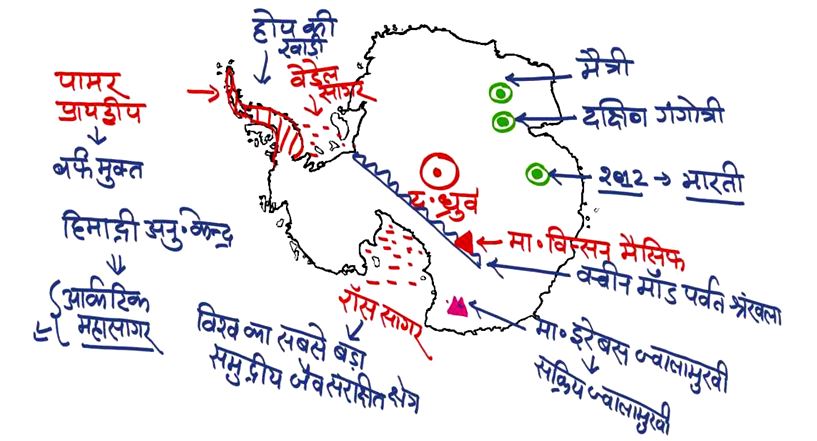 होप की
खाड़ी
वेडेल
सागर
पामर
प्रायद्वीप
बर्फ मुक्त
हिमाद्री अनु॰ केन्द्र
आर्कटिक
महासागर
मैत्री
दक्षिण गंगोत्री
२०१२ → भारती
द॰ ध्रुव
मा॰ विन्सन मैसिफ
क्वीन मॉड पर्वत श्रंखला
रॉस सागर
विश्व का सबसे बड़ा
समुद्रीय जैव संरक्षित क्षेत्र
मा॰ इरेबस ज्वालामुखी
सक्रिय ज्वालामुखी